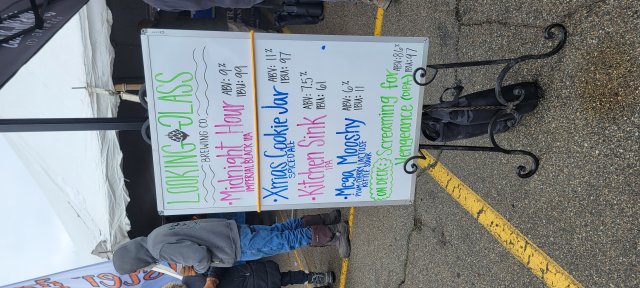 LOOKING GLASS
BREWING CO.
• Midnight Hour ABV: 9%
IMPERIAL BLACK IPA IBU: 99
• Xmas Cookie Jar ABV: 11%
SPICED ALE IBU: 97
• Kitchen Sink ABV: 7.5%
IPA IBU: 61
• Mega Mooshy ABV: 6%
KETTLE SOUR IBU: 11
(ON DECK:) Screaming for ABV: 8.6%
Vengeance (DIPA) IBU: 97